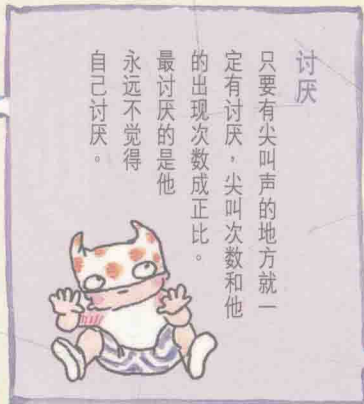 讨厌
只要有尖叫声的地方就一
定有讨厌，尖叫次数和他
的出现次数成正比。
最讨厌的是他
永远不觉得
自己讨厌。